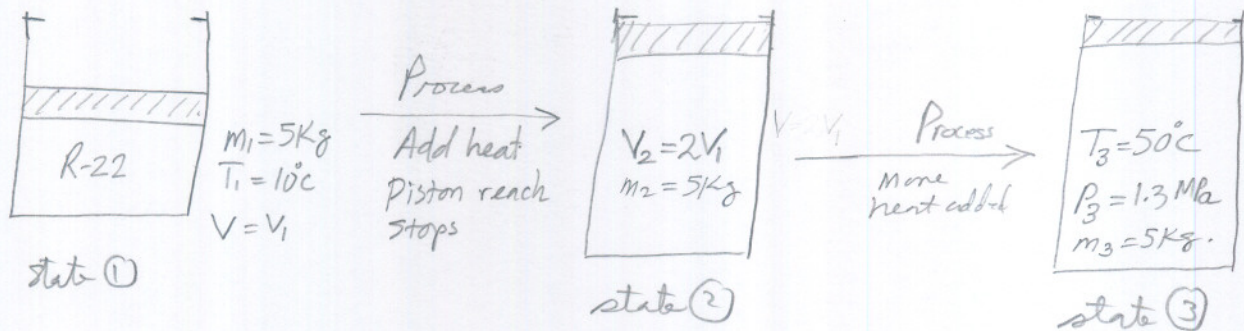 R-22
m₁ = 5Kg
T₁ = 10°C
V = V₁
state ①
Process
Add heat
Piston reach
stops
V₂ = 2V₁
m₂ = 5Kg
state ②
Process
more
heat added
T₃ = 50°C
P₃ = 1.3 MPa
m₃ = 5Kg.
state ③